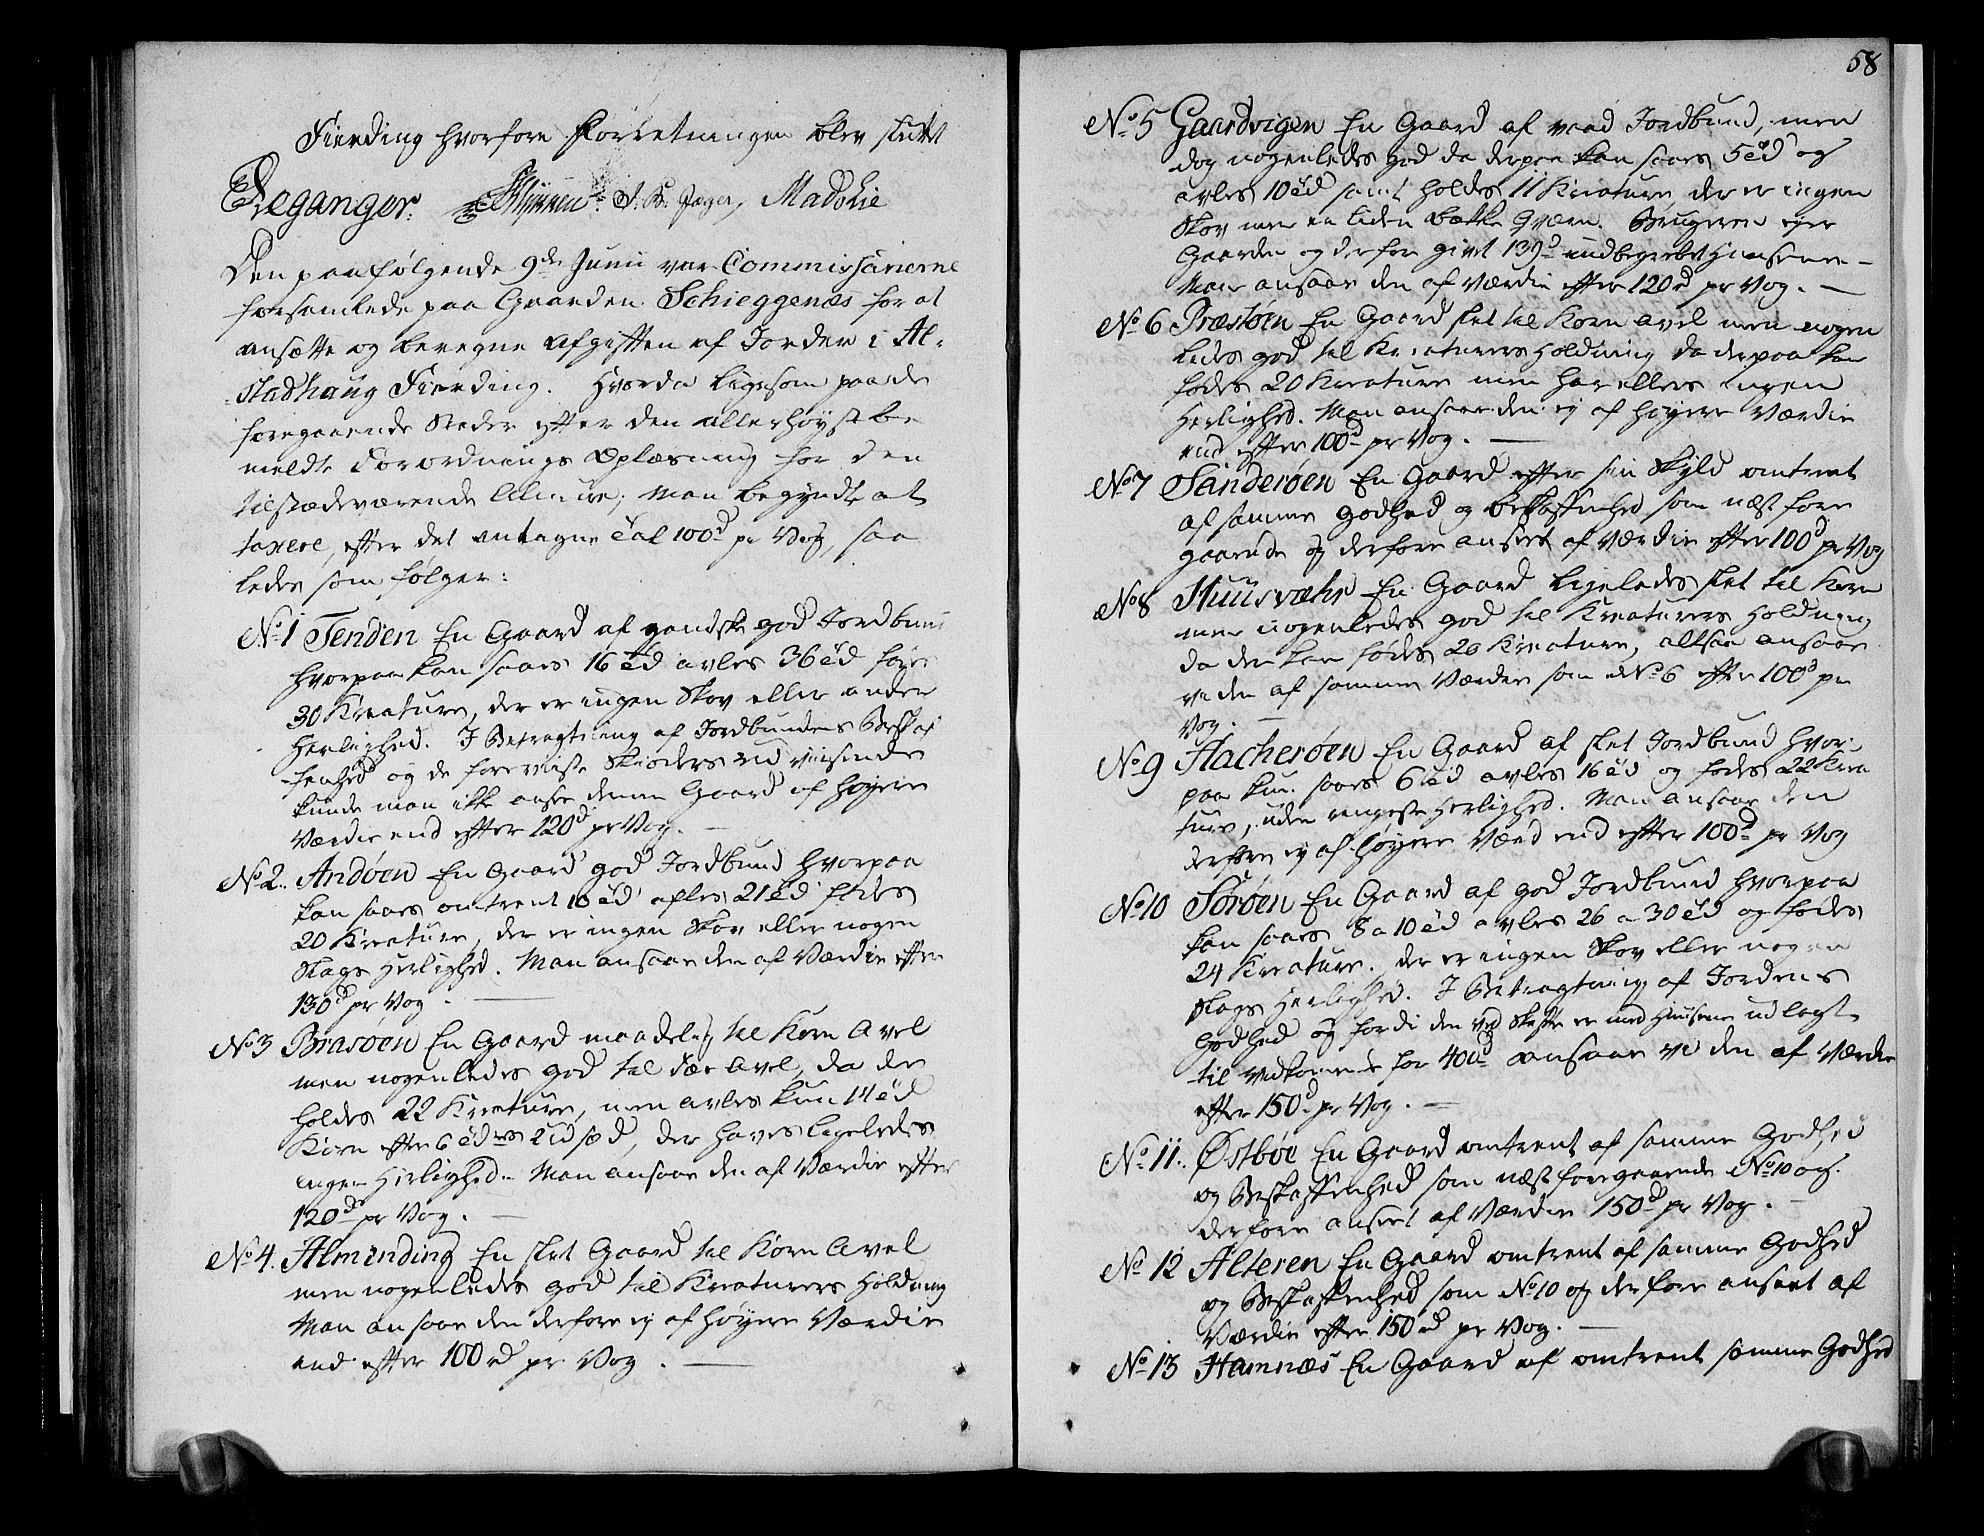 Fierding hvorfore Forretningen blev sluttet
Deganger. J. K. Jæger,
Den paafølgende 9de Junii var Commissairerne
forsamlede paa Gaarden Schieggenæs for at
ansætte og beregne Afgiften af Jorder i Al-
stadhaug Fierding. Hvorda ligesom paa de
foregaaende Steder efter den allerhøyst be
meldte Forordnings Oplæsning for den
tilstædeværende Almue; Man begyndte at
taxere, efter det antagne Tal 100d pr Vog, saa
ledes som følger:
No 1 Tenden En Gaard af gandske god Jordbund
hvorpaa kan saaes 16 Td avles 36 Td føder
30 Kreature, der er ingen Skov eller anden
Herlighed. I Betragtning af Jordbundens Beskaf
fenhed og de foreviste Skiøders Ud viisende
kunde man ikke ansee denne Gaard af høyere
Værdie end efter 120d pr Vog.
No 2. Andøen En Gaard god Jordbund hvorpaa
kan saaes omtrent 10 Td afles 21 Td fødes
20 Kreature, der er ingen Skov eller nogen
Slags Herlighed. Man ansaae den af Værdie efter
130d pr Vog.
No 3 Brasøen En Gaard maadelig til Korn Avel
men nogenledes god til Fæe Avel, da der
holdes 22 Kreature, men avles kun 14 Td
Korn efter 6 Tdrs Udsæd, der haves ligeledes
ingen Herlighed. Man ansaae den af Værdie efter
120de pr Vog.
No 4. Almending En slet Gaard til Korn Avel
men nogenledes god til Kreaturers Holdning
Man ansaae den derfore ej af høyere Værdie
end efter 100 rd pr Vog.
58
No 5 Gaardvigen En Gaard af vaad Jordbund, men
dog nogenledes god da derpaa kan saaes 5 Td og
avles 10 Td samt holdes 11 Kreature, der er ingen
Skov men en liden Bække Qværn. Brugeren ejer
Gaarden og derfor givet 139d indbegrebet Huusene
Man ansaae den af Værdie efter 120d pr Vog.
No 6 Præstøen En Gaard slet til Korn avel men nogen
ledes god til Kreaturers Holdning da derpaa kan
fødes 20 Kreature men har ellers ingen
Herlighed. Man ansaae den ej af høyere Værdie
end efter 100d pr Vog.
No 7 Sanderøen En Gaard efter sin Skyld omtrent
af samme godhed og beskaffenhed som næst fore
gaaende og derfore anseet af Værdie efter 100d pr Vog
No 8 Huusvæhr En Gaard ligeledes slet til Korn
men nogenledes god til Kreaturers Holdning
da der kan fødes 20 Kreature, altsaa ansaae
vi den af samme Værdie som No 6 efter 100d pr
Vog.
No 9 Hacherøen En Gaard af slet Jordbund hvor-
paa kun saaes 6 Td avles 16 Td og fødes 22 Krea
ture, uden ringeste Herlighed. Man ansaae den
derfore ej af høyere Værd end efter 100d pr Vog
No 10 Sørøen En Gaard af god Jordbund hvorpaa
kan saaes 8 a 10 Td avles 26 a 30 Td og fødes
24 Kreature. der er ingen Skov eller nogen
Slags Herlighed. I Betragtning af Jordens
Godhed og fordi den ved Skifte er med Huusene udlagt
til vedkomende for 400d ansaae vi den af Værdie
efter 150d pr Vog.
No 11. Østbøe En Gaard omtrent af samme Godhed
og Beskaffenhed som næst foregaaende No 10 og
derfore anseet af Værdie 150d pr Vog.
No 12 Alteren En Gaard omtrent af samme Godhed
og Beskaffenhed som No 10 og derfore anseet af
Værdie efter 150 rd pr Vog.
No 13 Hamnæs En Gaard af omtrent samme Godhed